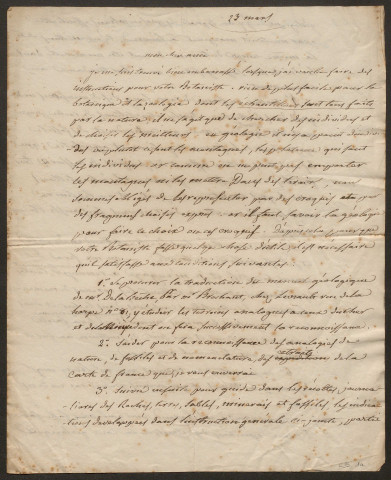 23 mars
mon cher ami
je me suis trouvé bien embarrassé lorsque j'ai voulu faire des
instructions pour votre botaniste. rien de plus facile pour la
botanique et la zoologie dont les échantillons sont tous faits
par la nature. il ne s'agit que de chercher des individus et
de choisir les meilleurs. en géologie il n'y a point d'indivi-
dus ce sont les montagnes, les plateaux qui sont
les individus or comme on ne peut pas emporter
les montagnes ni les mettre dans des tiroirs, nous
sommes obligés de les représenter par des croquis et par
des fragments choisis exprès. or il faut savoir la géologie
pour faire le choix ou ces croquis. D'après cela pour que
votre botaniste fasse quelque chose d'utile il est nécessaire
qu'il satisfasse aux conditions suivantes
1° se procurer la traduction du manuel géologique
de M. de la Beche, par M. Brochant, chez Levrault rue de la
harpe n° 81, y étudier les terrains analogues à ceux
dont on fera
2° s'aider pour la reconnaissance des analogies de
nature, de fossiles et de nomenclature, des extraits de la
carte de france que je vous enverrai
3° suivre ensuite pour guide dans les récoltes,
des Roches, terres, sables, minerais et fossiles les indica-
tions développées dans l'instruction générale ci-jointe,